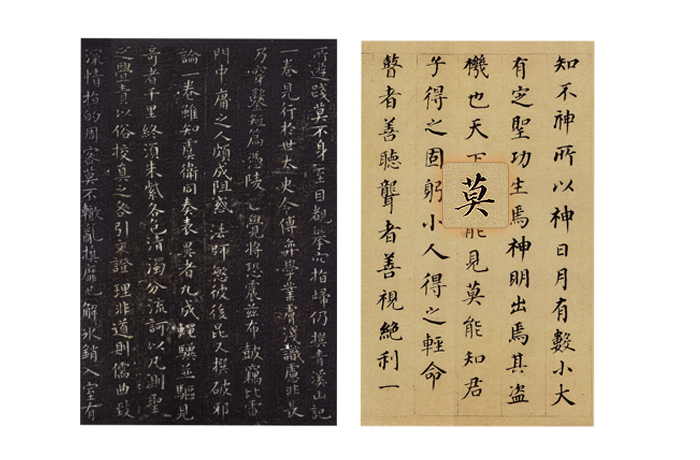 知不神所以神日月有數小大
有定聖功生焉神明出焉其盜
機也天下莫能見莫能知君
子得之固躬小人得之輕命
瞽者善聽聾者善視絕利一
所遊踐莫不身至目覩指歸仍撰青溪山記
一卷見行於世太史令傅弈學業膚淺識慮非長
乃穿鑿短篇憑陵正覺將恐震茲布鼓竊比雷
門中庸之人頗成阻惑法師愍彼後昆又撰破邪
論一卷雖知虞衛同奏表異者九成蠅驥並驅見
奇者千里終須朱紫各色清濁分流訶以凡測聖
之舋責以俗校真之咎引文證理非道則儒曲致
深情指的周密莫不轍亂旗靡瓦解冰銷入室有